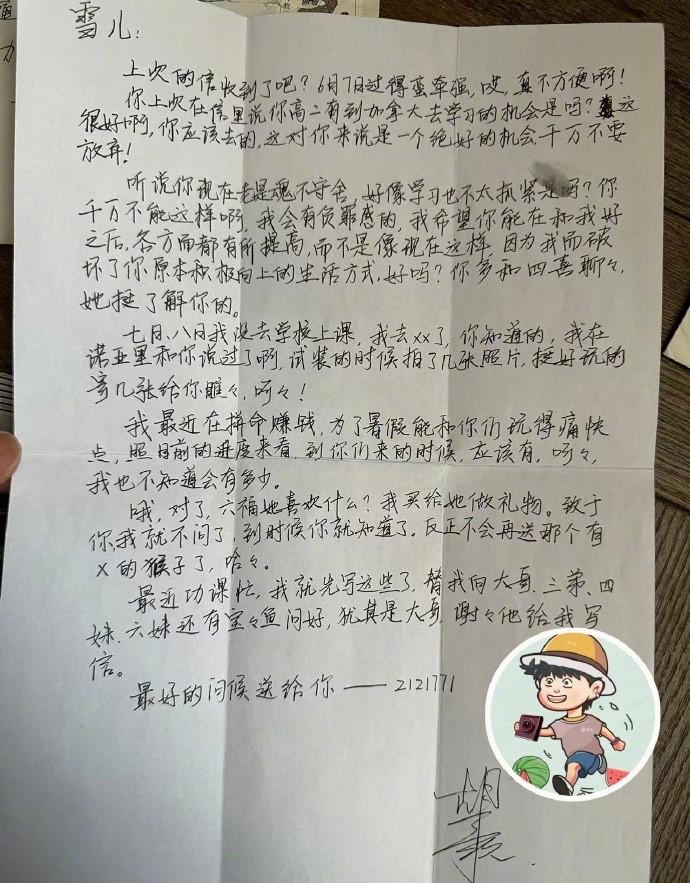 雪儿:
上次的信收到了吧?6月7日过得蛮牵强,哎,真不方便啊!
你上次在信里说你高二有到加拿大去学习的机会是吗?这
很好啊,你应该去的,这对你来说是一个绝好的机会,千万不要
放弃!
听说你现在老是魂不守舍,好像学习也不太抓紧是吗?你
千万不能这样啊,我会有负罪感的,我希望你能在和我好
之后,各方面都有所提高,而不是像现在这样,因为我而破
坏了你原本积极向上的生活方式,好吗?你多和四喜聊々,
她挺了解你的。
七日、八日我没去学校上课,我去xx了,你知道的,我在
诺亚里和你说过了啊,试装的时候拍了几张照片,挺好玩的
寄几张给你瞧々,呵々!
我最近在拼命赚钱,为了暑假能和你们玩得痛快
点,照目前的进度来看,到你们来的时候,应该有,呵々,
我也不知道会有多少。
哦,对了,六福她喜欢什么?我买给她做礼物。致于
你我就不问了,到时候你就知道了。反正不会再送那个有
X的猴子了,哈々。
最近功课忙,我就先写这些了,替我向大哥、三弟、四
妹、六妹还有宝々鱼问好,犹其是大哥,谢々他给我写
信。
最好的问候送给你——2121771
胡